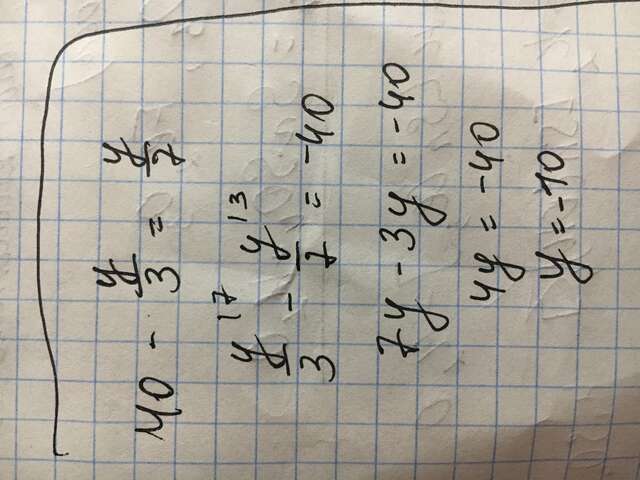 40 - y/3 = y/7
y/3 |7 - y/7 |3 = -40
7y - 3y = -40
4y = -40
y = -10